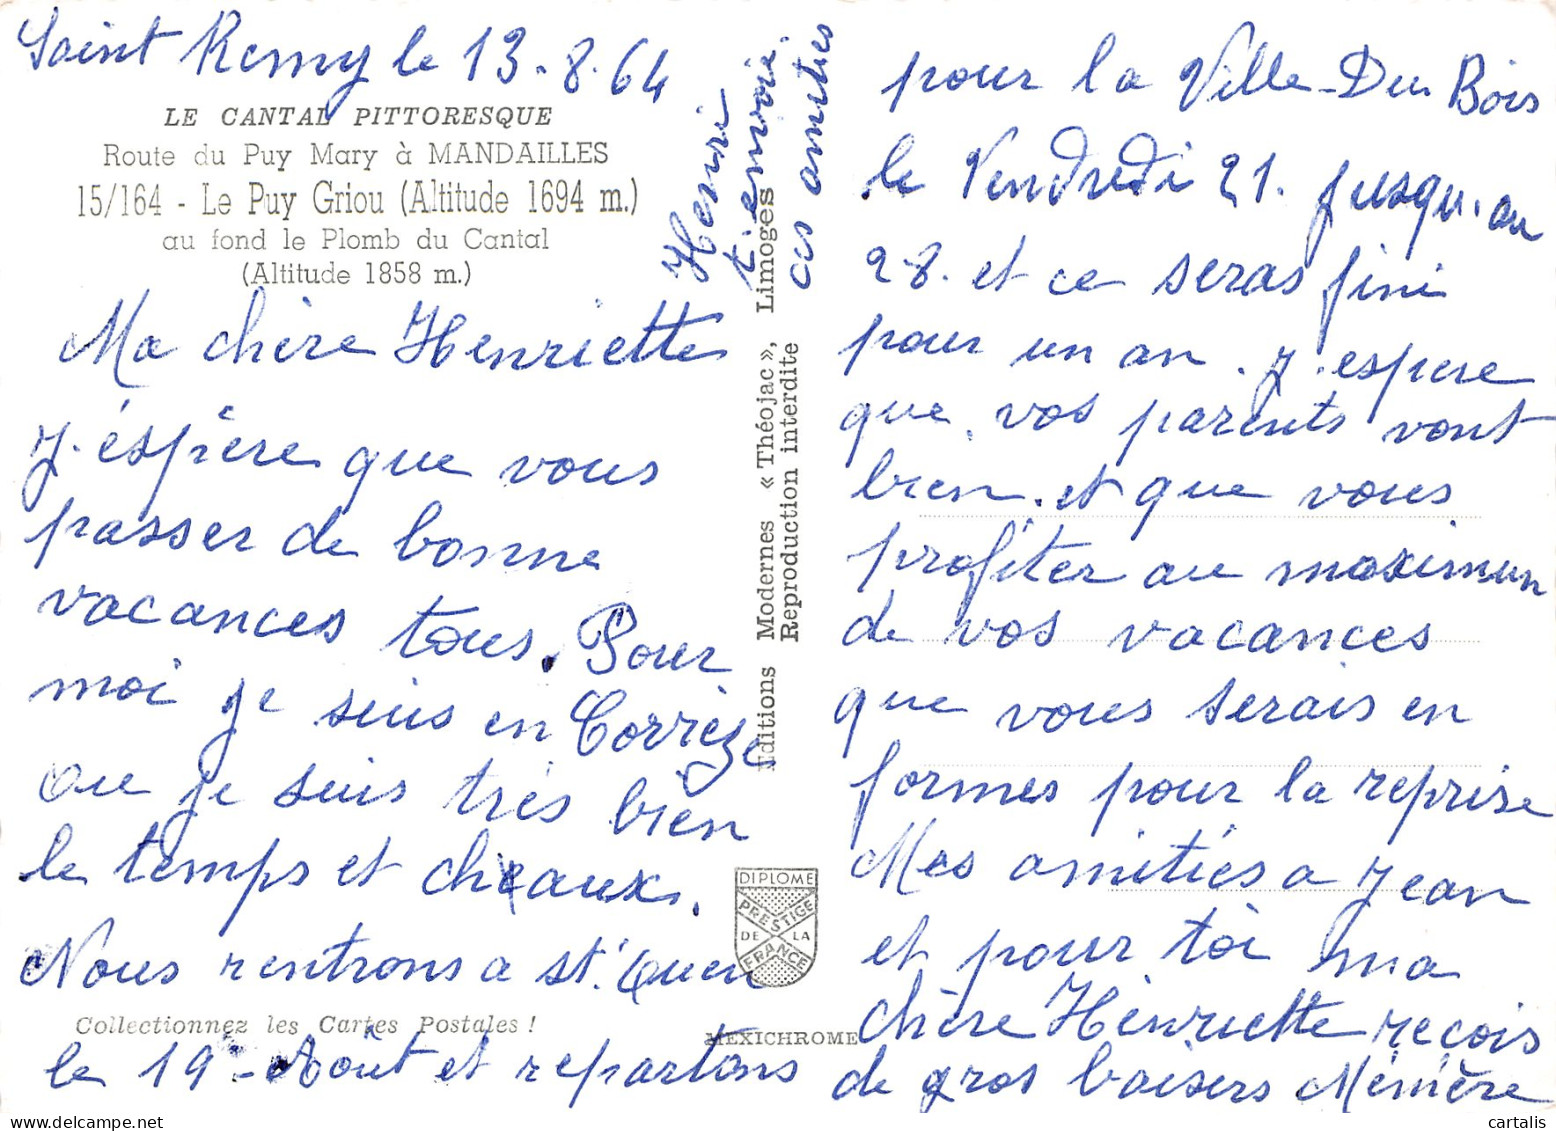 Saint Remy le 13-8-64
LE CANTAL PITTORESQUE
Route du Puy Mary à MANDAILLES
15/164 - Le Puy Griou (Altitude 1694 m.)
au fond le Plomb du Cantal
(Altitude 1858 m.)
Ma chère Henriette
J'éspère que vous
passer de bonne
vacances tous. Pour
moi je suis en Corrèze
ou je suis très bien
le temps et chaux.
Nous rentrons a st. Ouen
Collectionnez les Cartes Postales !
le 19 - Août et repartons
Henri
t'envoie
ces amitiés
Editions Modernes « Théojac », Limoges
Reproduction interdite
DIPLOME
PRESTIGE
DE LA
FRANCE
MEXICHROME
pour la Ville-Du Bois
le Vendredi 21. jusqu'au
28. et ce seras fini
pour un an. J'espere
que vos parents vont
bien. et que vous
profiter au maximun
de vos vacances
que vous serais en
formes pour la reprise
Mes amitiés a Jean
et pour toi ma
chère Henriette reçois
de gros baisers Mémère
cartalis